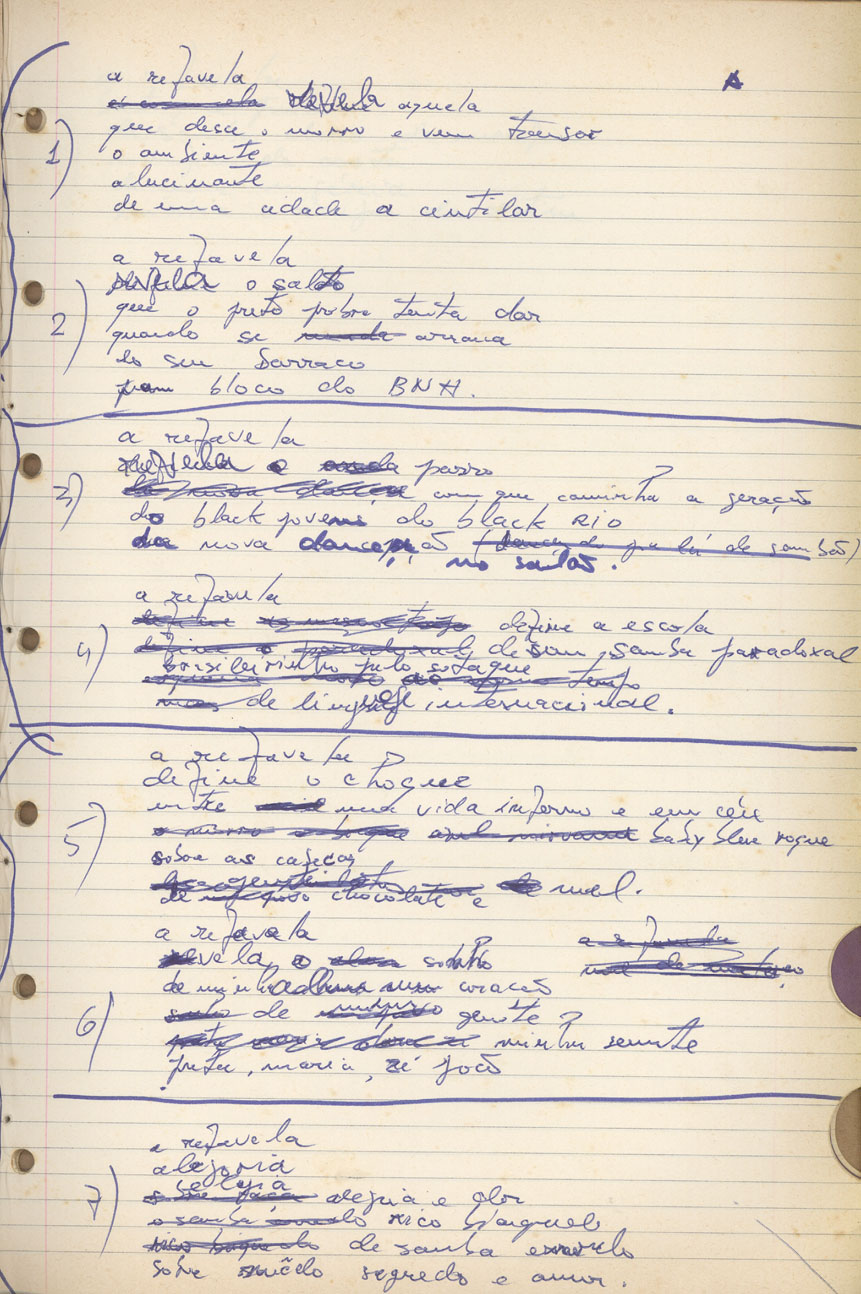 A
1)
a refavela
revela aquela
que desce o morro e vem transar
o ambiente
alucinante
de uma cidade a cintilar
2)
a refavela
revela o salto
que o preto pobre tenta dar
quando se arranca
do seu barraco
prum bloco do BNH.
3)
a refavela
revela o passo
com que caminha a geração
do black jovem do black Rio
da nova dança
no salão.
4)
a refavela
define a escola
de som, samba paradoxal
brasileirinho pelo sotaque
mas de língua internacional.
5)
a refavela
define o choque
entre uma vida inferno e em céu
baby blue roque
sobre as cabeças
de chocolate e mel.
6)
a refavela a refavela
revela o sonho
de minha alma meu coração
de minha gente
minha semente
preta, maria, zé joão
7)
a refavela
alegoria
elegia
alegria e dor
rico brinquedo
de samba enredo
sobre medo segredo e amor.